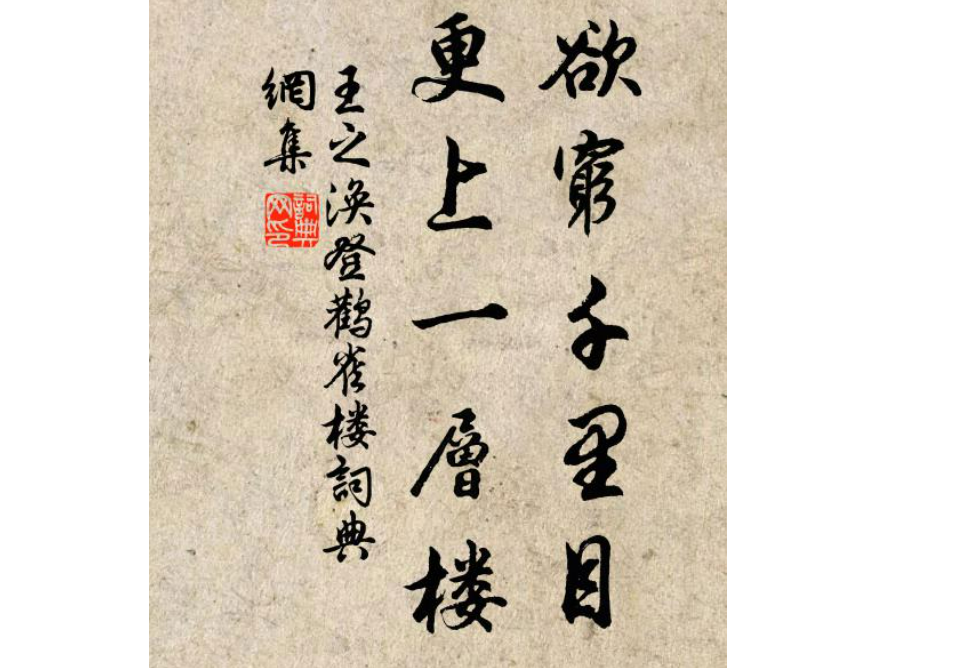 欲窮千里目
更上一層楼
王之渙登鸛雀楼詞典
網集
詞典
网印